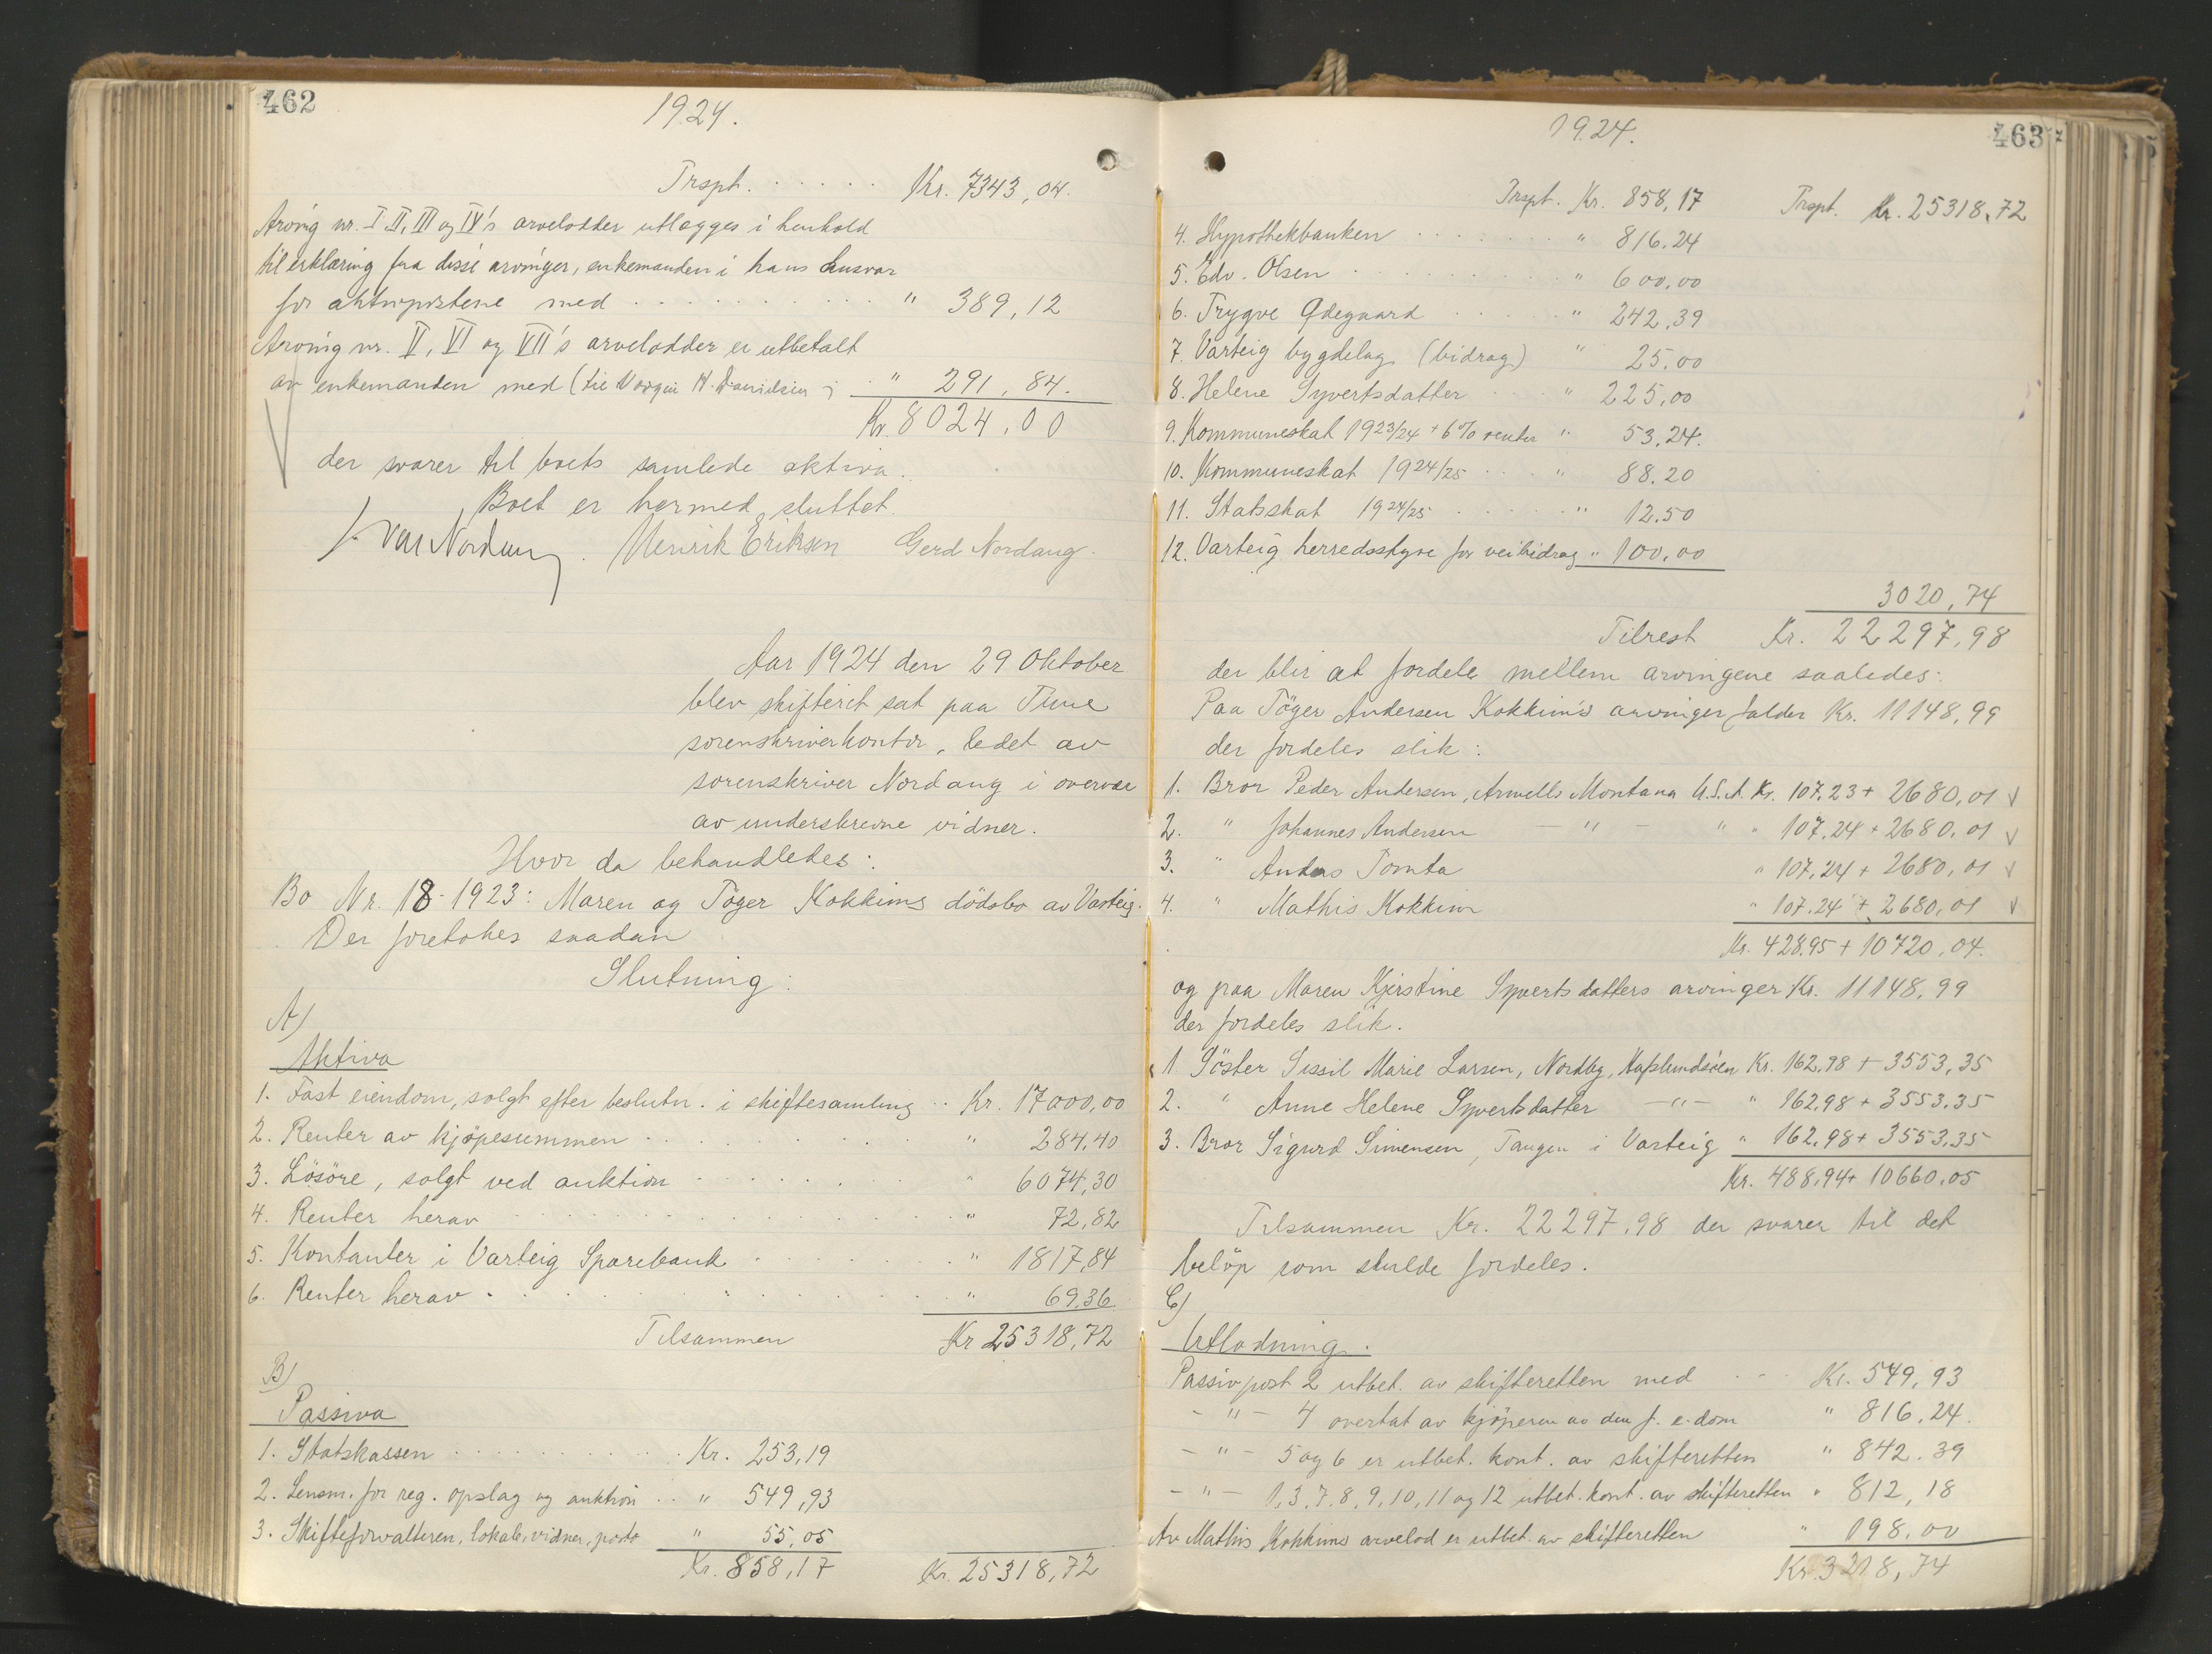 462
1924.
Trspt. . . . . . Kr. 7343,04.
Arving nr. I II, III og IV's arvelodder utlægges i henhold
til erklæring fra disse arvinger, enkemanden i hans ansvar
for aktivpostene med . . . . . . . . . . " 389,12
Arving nr. V, VI og VII's arvelodder er utbetalt
av enkemanden med (til H. Danielsen " 291,84.
Kr. 8024,00
der svarer til boets samlede aktiva.
Boet er hermed sluttet.
Nordang. Henrik Eriksen Gerd Nordang.
Aar 1924 den 29 Oktober
blev skifteret sat paa Tune
sorenskriverkontor, ledet av
sorenskriver Nordang i overvær
av underskrevne vidner.
Hvor da behandledes:
Bo Nr. 18-1923: Maren og Töger Kokkims dödsbo av Varteig.
Der foretokes saadan
Slutning:
A)
Aktiva
1. Fast eiendom, solgt efter beslutn. i skiftesamling . . Kr. 17000,00
2. Renter av kjöpesummen . . . . . . . . " 284,40
3. Lösöre, solgt ved auktion . . . . . . . " 6074,30
4. Renter herav . . . . . . . . . . " 72,82
5. Kontanter i Varteig Sparebank . . . . . . " 1817,84
6. Renter herav . . . . . . . . . . " 69,36
Tilsammen Kr 25318,72
B)
Passiva
1. Statskassen . . . . . . . . . Kr. 253,19
2. Lensm. for reg. opslag og auktion . . " 549,93
3. Skifteforvalteren, lokale, vidner, porto " 55,05
Kr. 858,17 Kr. 25318,72
1924.
463
Trspt. Kr. 858,17 Trspt. Kr. 25318,72
4. Hypothekbanken . . . . . . . " 816.24
5. Edv. Olsen . . . . . . . . . " 600,00
6. Trygve Ødegaard . . . . . " 242,39
7. Varteig bygdelag (bidrag) " 25,00
8. Helene Syvertsdatter . . . " 225,00
9. Kommuneskat 1923/24 + 6% renter " 53,24.
10. Kommuneskat 1924/25 . . . . " 88.20
11. Statsskat 1924/25 . . . . . . " 12.50
12. Varteig herredsstyre for veibidrag " 100,00
3020,74
Tilrest Kr. 22297,98
der blir at fordele mellem arvingene saaledes:
Paa Töger Andersen Kokkim's arvinger falder Kr. 11148,99
der fordeles slik:
1. Bror Peder Andersen, Armells Montana U.S.A. Kr. 107,23 + 2680,01 √
2. " Johannes Andersen — " — " " 107.24 + 2680,01 √
3. " Anders Tomta " 107,24 + 2680,01 √
4. " Mathis Kokkim " 107.24 + 2680,01 √
Kr. 428.95 + 10720,04.
og paa Maren Kjerstine Syvertsdatters arvinger Kr. 11148,99
der fordeles slik.
1 Söster Sissil Marie Larsen, Nordby, Hafslundsöen Kr. 162,98 + 3553,35
2. " Anne Helene Syvertsdatter — " — " 162,98 + 3553.35
3. Bror Sigurd Simensen, Tangen i Varteig " 162,98 + 3553,35
Kr. 488,94 + 10660,05
Tilsammen Kr. 22297,98 der svarer til det
belöp som skulde fordeles.
C)
Utlodning.
Passivpost 2 utbet. av skifteretten med . . . Kr. 549,93
- " - 4 overtat av kjöperen av den f. e.dom " 816,24.
- " - 5 og 6 er utbet. kont. av skifteretten " 842.39
- " - 1, 3, 7, 8, 9, 10, 11 og 12 utbet. kont. av skifteretten " 812,18
Av Mathis Kokkims arvelod er utbet. av skifteretten " 198,00
Kr 3218,74